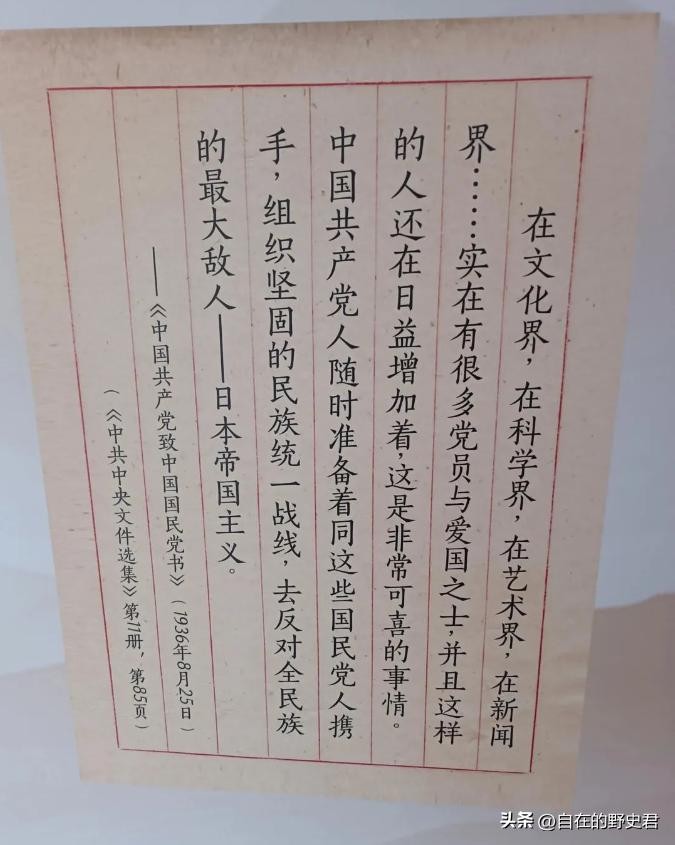 在文化界，在科学界，在艺术界，在新闻
界……实在有很多党员与爱国之士，并且这样
的人还在日益增加着，这是非常可喜的事情。
中国共产党人随时准备着同这些国民党人携
手，组织坚固的民族统一战线，去反对全民族
的最大敌人——日本帝国主义。
——《中国共产党致中国国民党书》（1936年8月25日）
（《中共中央文件选集》第11册，第85页）
头条 @自在的野史君